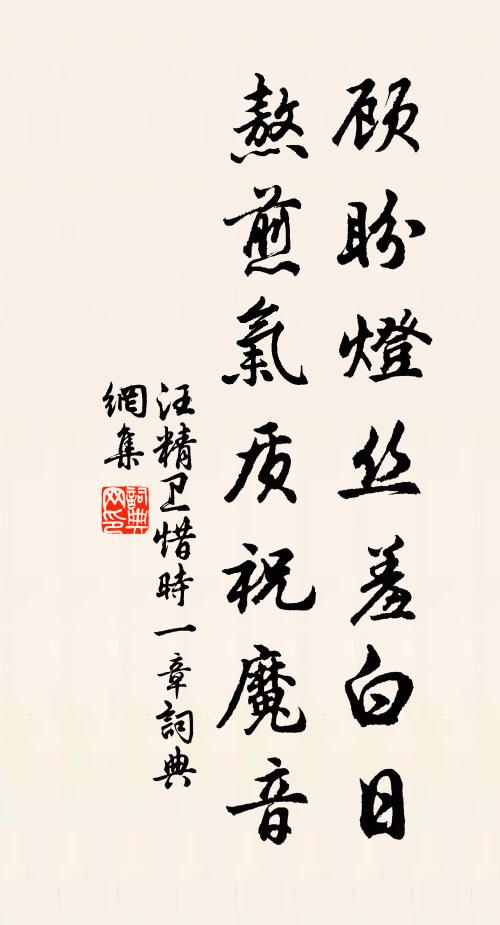 顾盼燈丝羞白日
熬煎氣质祝魔音
汪精卫惜時一章詞典
網集
詞典
网印